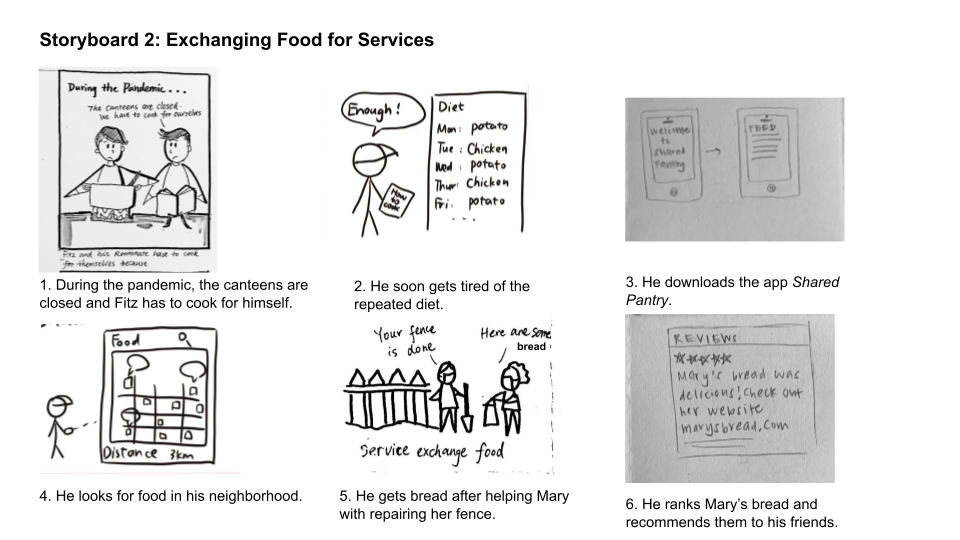 Storyboard 2: Exchanging Food for Services
During the Pandemic...
The canteens are closed.
We have to cook for ourselves
Fitz and his Roommate have to cook
for themselves because
1. During the pandemic, the canteens are
closed and Fitz has to cook for himself.
Enough!
How
to
cook
Diet
Mon: potato
Tue: Chicken
Wed: potato
Thur: Chicken
Fri. potato
...
2. He soon gets tired of the
repeated diet.
Welcome
to
Shared
Pantry
FEED
3. He downloads the app Shared
Pantry.
Food
Distance 3km
4. He looks for food in his neighborhood.
Your fence
is done
Here are some
bread
Service exchange food
5. He gets bread after helping Mary
with repairing her fence.
REVIEWS
Mary's bread was
delicious! Check out
her website
marysbread.com
6. He ranks Mary's bread and
recommends them to his friends.